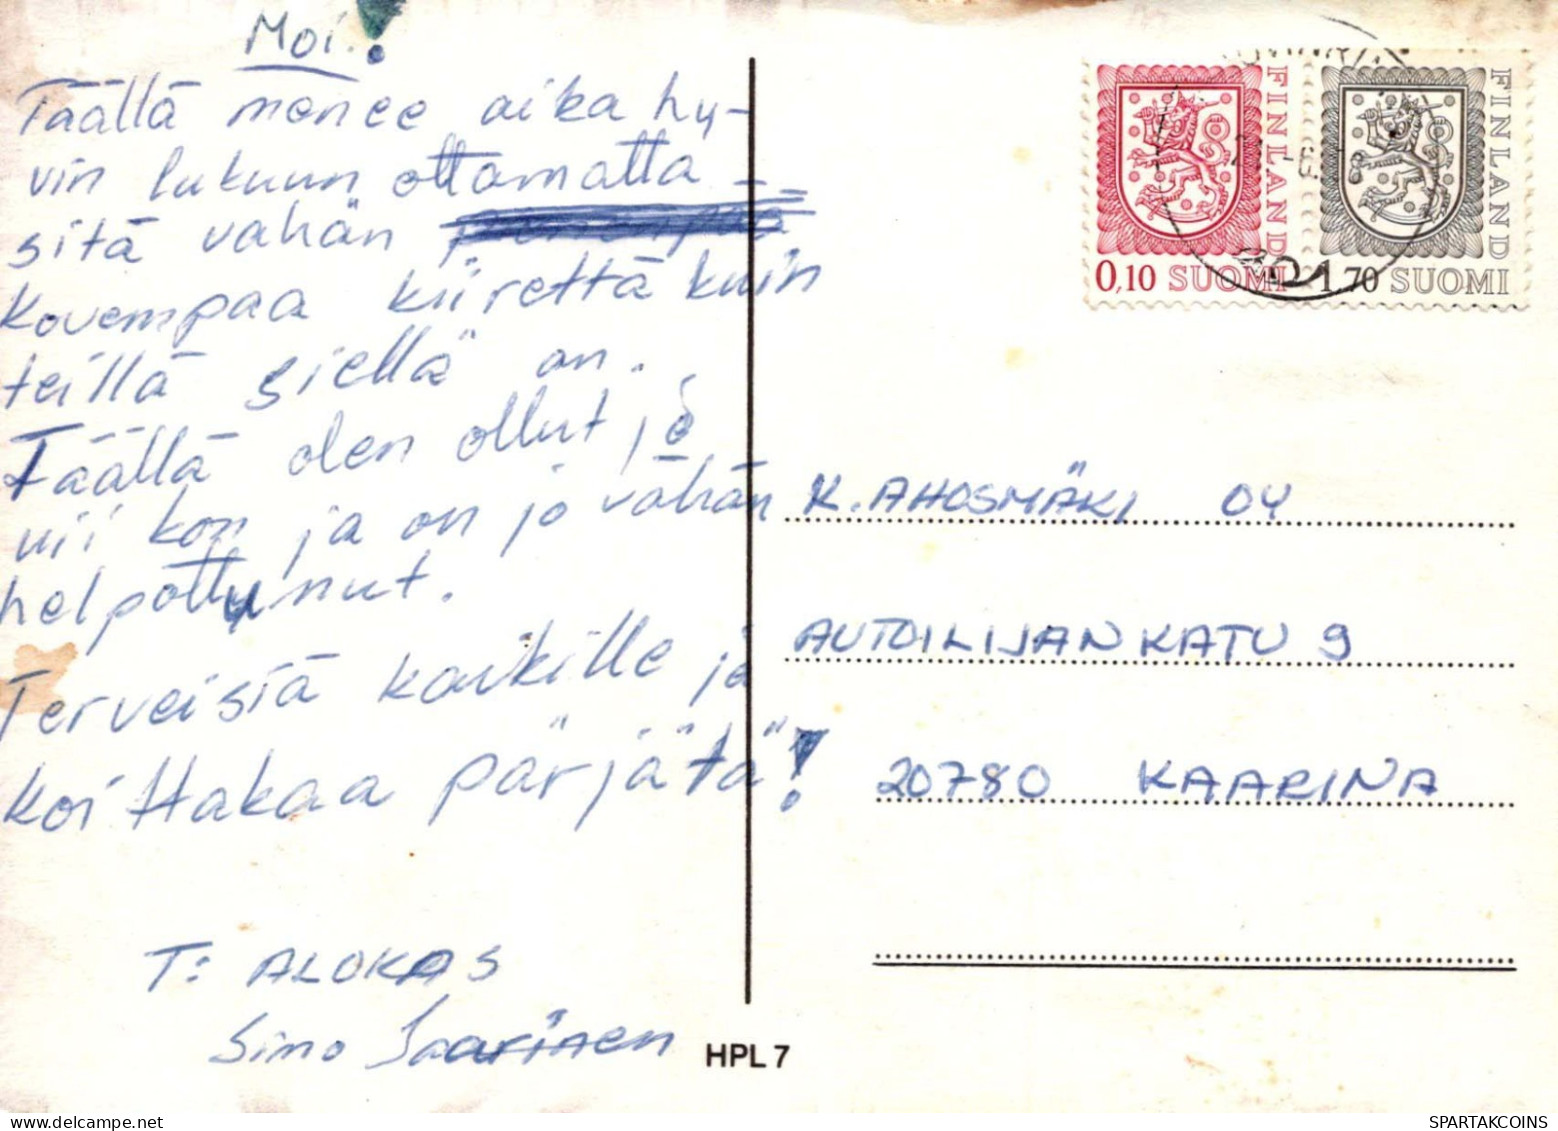 Moi!
Täällä menee aika hy-
vin lukuun ottamatta
sitä vähän
kovempaa kiirettä kuin
teillä siellä on.
Täällä olen ollut jo
vii kon ja on jo vähän
helpottunut.
Terveisiä kaikille ja
koittakaa pärjätä!
T: ALOKAS
Simo Saarinen
HPL 7
FINLAND
0,10 SUOMI
FINLAND
1,70 SUOMI
K. AHOSMÄKI OY
AUTOILIJANKATU 9
20780 KAARINA
SPARTAKCOINS